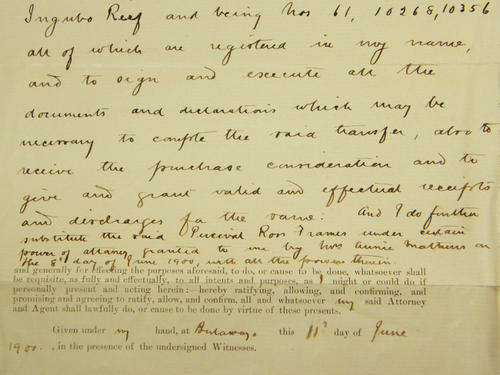 Ingubo Reef and being Nos 61, 10268, 10356
all of which are registered in my name,
and to sign and execute all the
documents and declarations which may be
necessary to complete the said transfer, also to
receive the purchase consideration and to
give and grant valid and effectual receipts
and discharges for the same. And I do further
substitute the said Percival Ross Frames under certain
power of attorney granted to me by Mrs Annie Mathers on
the 8th day of June 1900, with all the powers therein
and generally for effecting the purposes aforesaid, to do, or cause to be done, whatsoever shall
be requisite, as fully and effectually, to all intents and purposes, as I might or could do if
personally present and acting herein:- hereby ratifying, allowing, and confirming, and
promising and agreeing to ratify, allow, and confirm, all and whatsoever my said Attorney
and Agent shall lawfully do, or cause to be done by virtue of these presents.
Given under my hand, at Bulawayo this 11th day of June
1900. in the presence of the undersigned Witnesses.